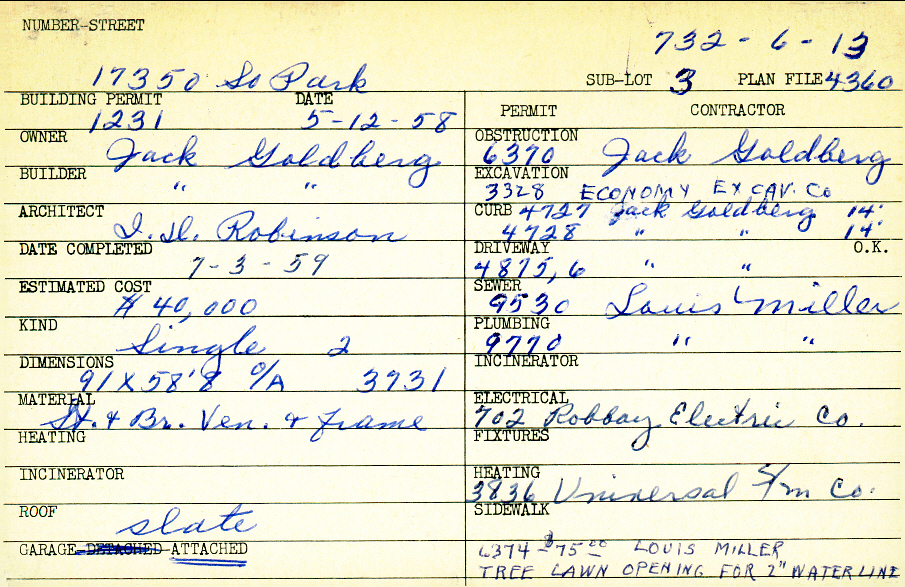 NUMBER-STREET
732-6-13
17350 So Park
SUB-LOT 3 PLAN FILE 4360
BUILDING PERMIT DATE
1231 5-12-58
OWNER
Jack Goldberg
BUILDER
" "
ARCHITECT
I. H. Robinson
DATE COMPLETED
7-3-59
ESTIMATED COST
$ 40,000
KIND
Single 2
DIMENSIONS
91 X 58'8 O/A 3731
MATERIAL
St. & Br. Ven. & frame
HEATING
INCINERATOR
ROOF
slate
GARAGE-DETACHED-ATTACHED
PERMIT CONTRACTOR
OBSTRUCTION
6370 Jack Goldberg
EXCAVATION
3328 ECONOMY EXCAV. Co
CURB 4727 Jack Goldberg 14'
4728 " " 14'
DRIVEWAY O.K.
4875,6 " "
SEWER
9530 Louis Miller
PLUMBING
9770 " "
INCINERATOR
ELECTRICAL
702 Robbay Electric Co.
FIXTURES
HEATING
3836 Universal S/m Co.
SIDEWALK
6374 - $75.00 LOUIS MILLER
TREE LAWN OPENING FOR 2" WATERLINE